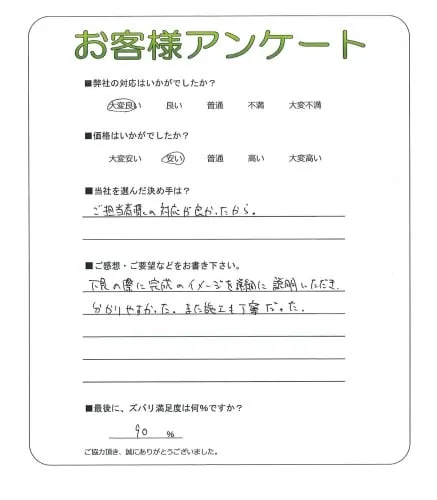 お客様アンケート
■弊社の対応はいかがでしたか?
大変良い 良い 普通 不満 大変不満
■価格はいかがでしたか?
大変安い 安い 普通 高い 大変高い
■当社を選んだ決め手は?
ご担当者様の対応が良かったから。
■ご感想・ご要望などをお書き下さい。
下見の際に完成のイメージを詳細に説明いただき、
分かりやすかった。また施工も丁寧だった。
■最後に、ズバリ満足度は何%ですか?
90 %
ご協力頂き、誠にありがとうございました。